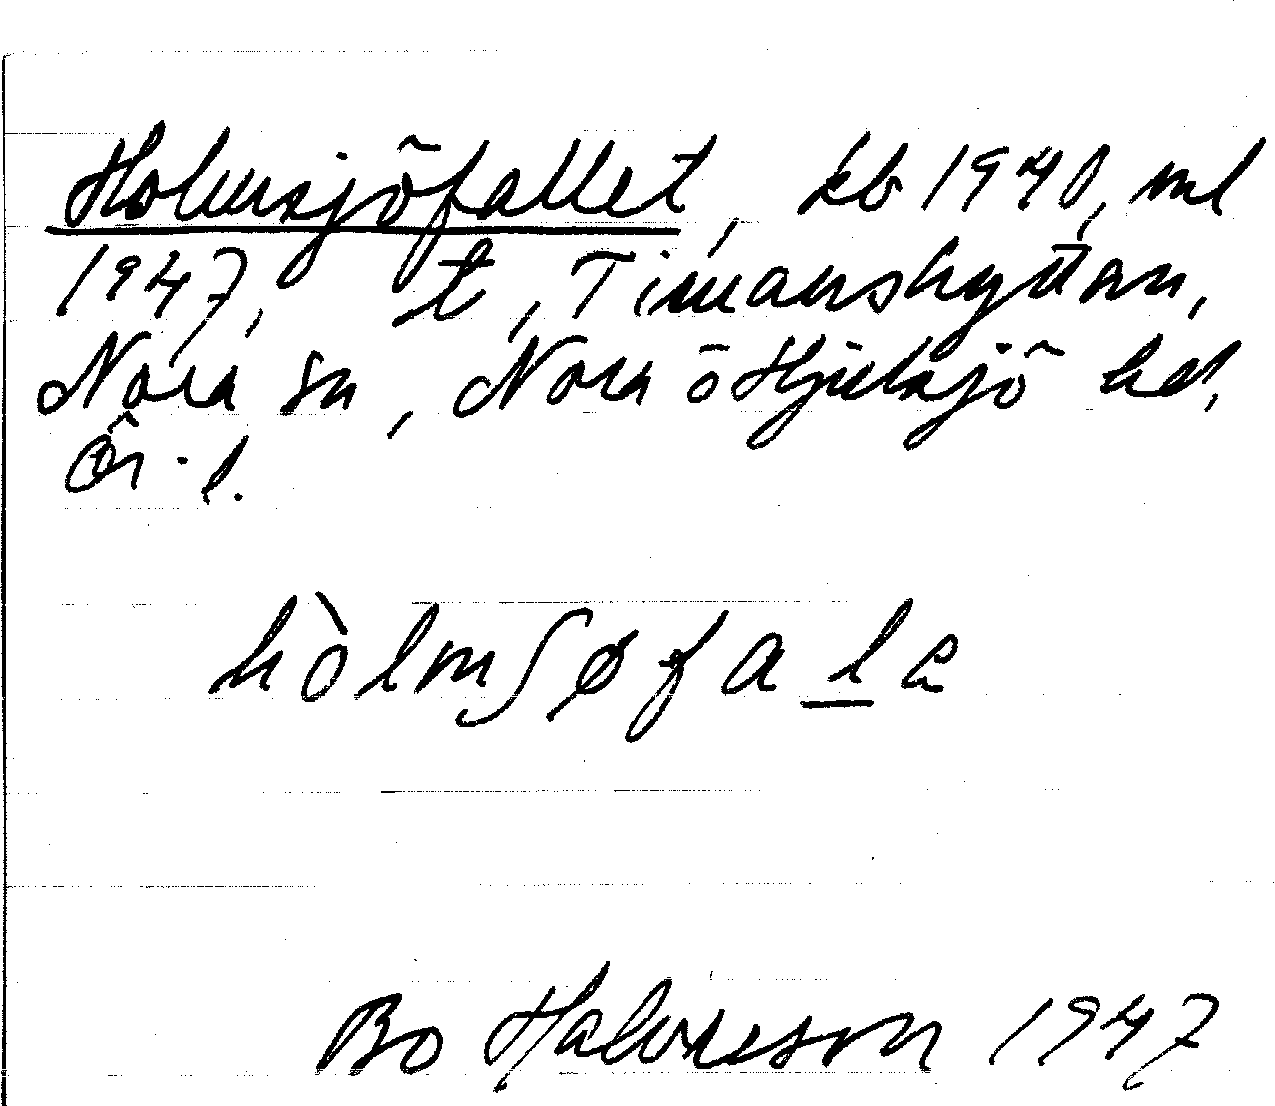 Holmsjöfallet, kb 1940, ml
1947, t, Timanshyttan,
Nora sn, Nora ö Hjulsjö hd,
Ör. l.
hòlmʃøfala
Bo Halvarsson 1947